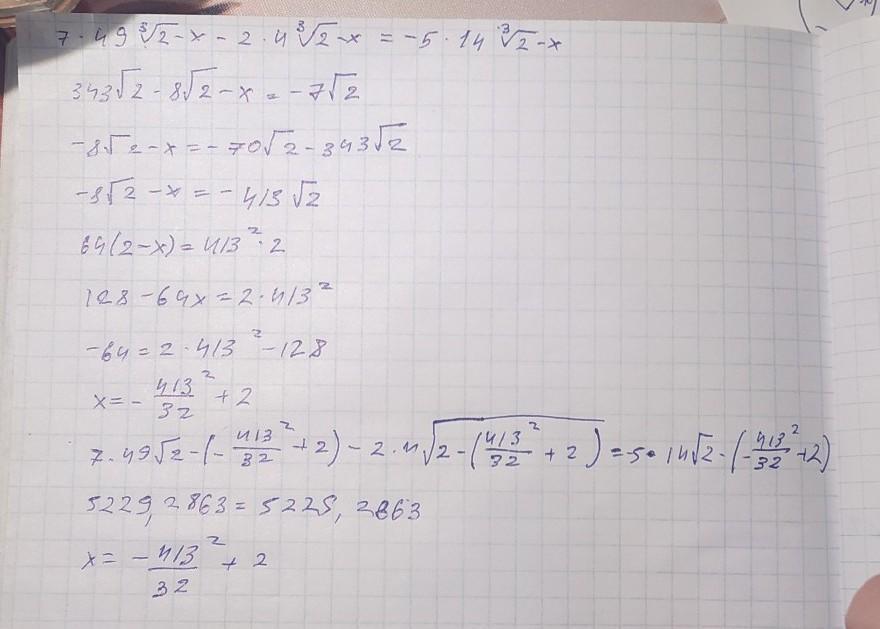 7·49∛2-x - 2·4∛2-x = -5·14∛2-x
343√2 - 8√2 - x = -7√2
-8√2 - x = -70√2 - 343√2
-8√2 - x = -413√2
64(2-x) = 413²·2
128 - 64x = 2·413²
-64 = 2·413² - 128
x = -413²/32 + 2
7·49√2 - (-413²/32 + 2) - 2·4√(2 - (413²/32 + 2)) = -5·14√2 - (-413²/32 + 2)
5229,2863 = 5225,2863
x = -413²/32 + 2